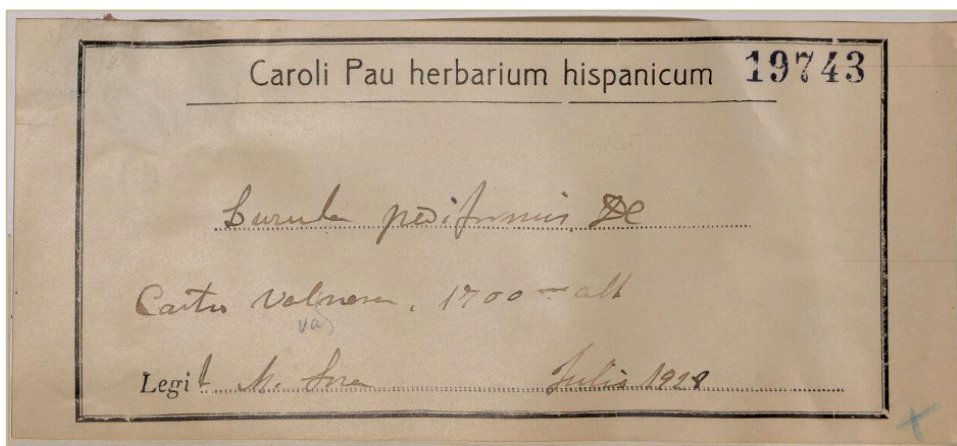 Caroli Pau herbarium hispanicum 19743
Luzula pediformis DC
Castro Valnera, 1700 m alt
va
Legit M. Losa Julio 1928